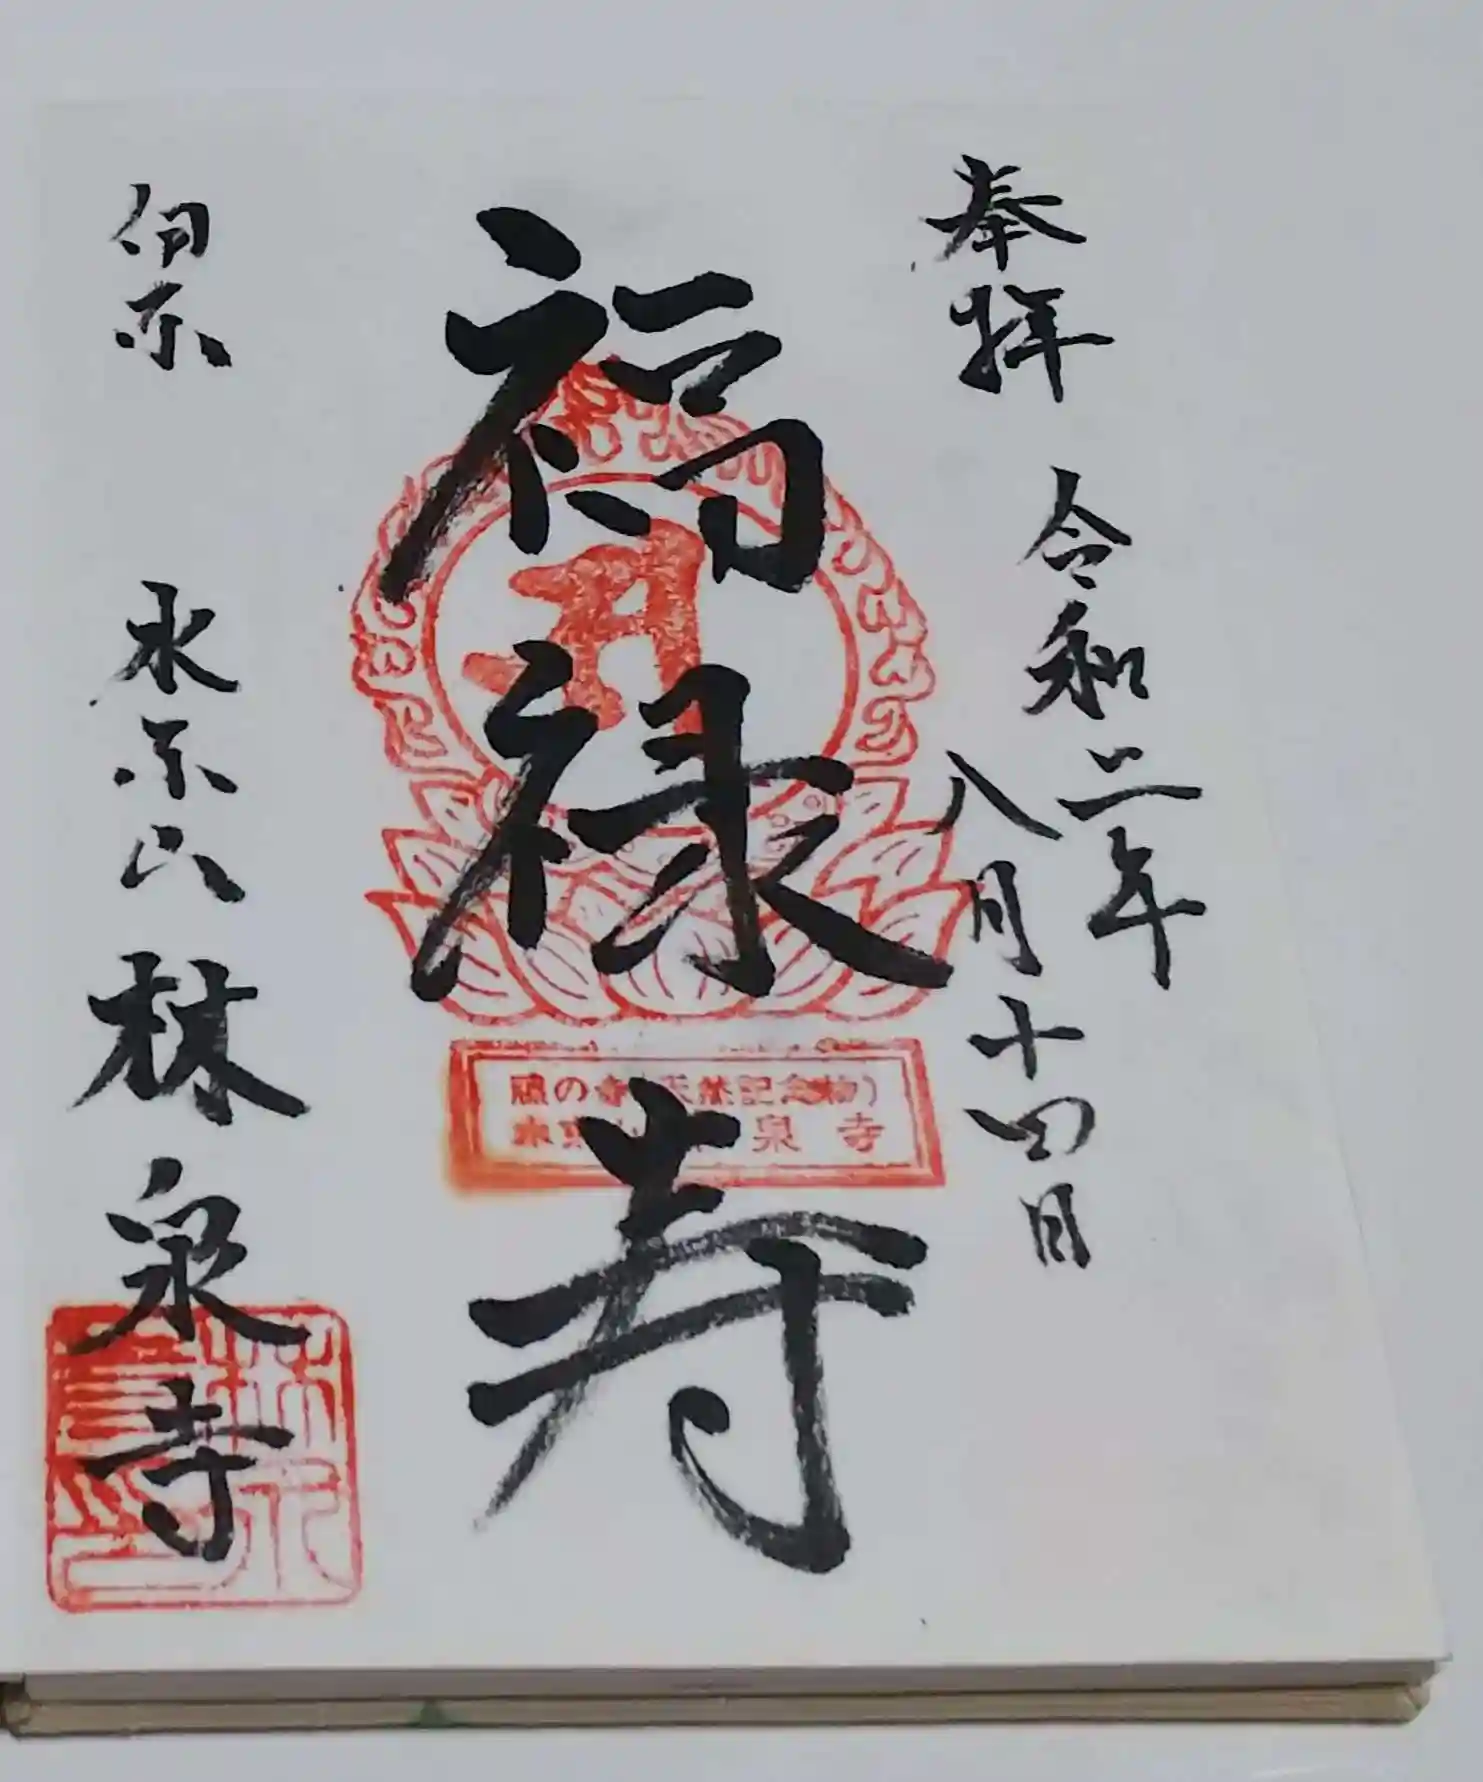 奉拝
令和二年
八月十四日
福禄寿
の寺(天然記念物)
東京山林泉寺
伊东
東京山林泉寺